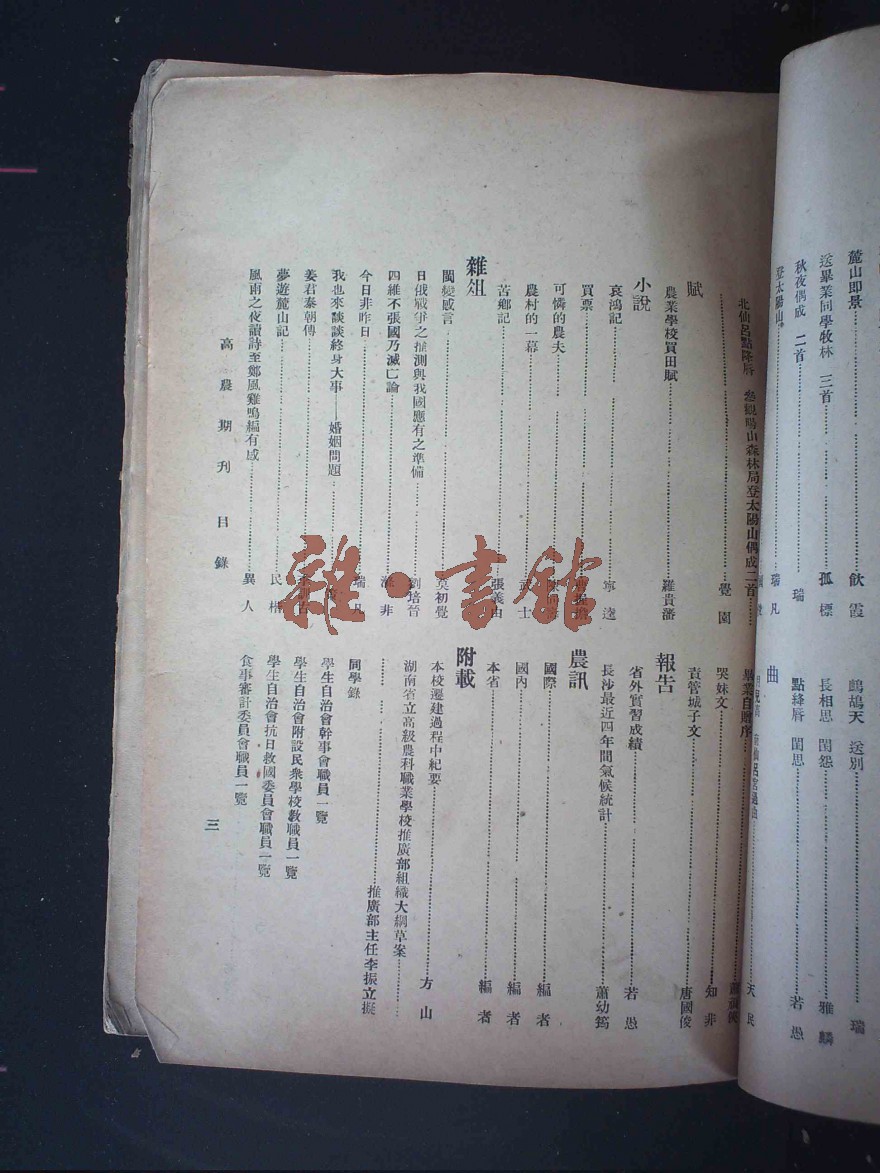 麓山即景……飲霞
送畢業同學牧林 三首……孤標
秋夜偶成 二首……瑞
登太陽山……瑞凡
鷓鴣天 送別……瑞
長相思 閨怨……雅麟
點絳唇 閨思……若愚
曲
北仙呂點絳唇 參觀陽山森林局登太陽山偶成二首……
……覺園
賦
農業學校買田賦……羅貴藩
小說
哀鴻記……寧逵
買票……
可憐的農夫……
農村的一幕……武士
苦鄉記……張義由
雜俎
閩變感言……莫初覺
日俄戰爭之推測與我國應有之準備……劉培晉
四維不張國乃滅亡論……非
今日非昨日……瑞凡
我也來談談終身大事——婚姻問題……
姜君泰朝傳……
夢遊麓山記……民楷
風雨之夜讀詩至鄭風雞鳴編有感……異人
天民
畢業自贈序……
哭妹文……知非
責管城子文……唐國俊
報告
省外實習成績……若愚
長沙最近四年間氣候統計……蕭幼筠
農訊
國際……編者
國內……編者
本省……編者
附載
本校遷建過程中紀要……方山
湖南省立高級農科職業學校推廣部組織大綱草案……
……推廣部主任李振立擬
同學錄
學生自治會幹事會職員一覽
學生自治會附設民衆學校教職員一覽
學生自治會抗日救國委員會職員一覽
食事審計委員會職員一覽
高農期刊 目錄
三
雜·書館